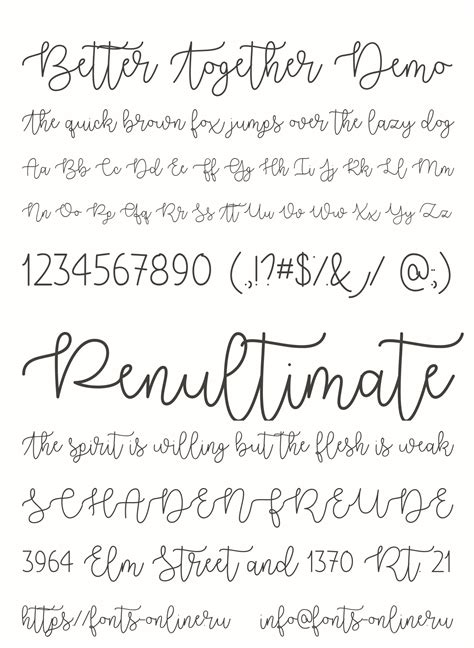 Better Together Demo
the quick brown fox jumps over the lazy dog
Aa Bb Cc Dd Ee Ff Gg Hh Ii Jj Rk Ll Mm
Nn Oo Pp Qq Rr Ss Tt Uu Vv Ww Xx Yy Zz
1234567890 (.,!?#$/.& ,/ @:;)
Penultimate
the spirit is willing but the flesh is weak
SCHADENFREUDE
3964 Elm Street and 1370 Rt. 21
https//fonts-online.ru info@fonts-online.ru